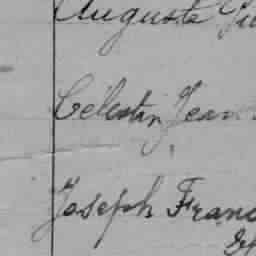 Auguste
Célestin Jean
Joseph Franc